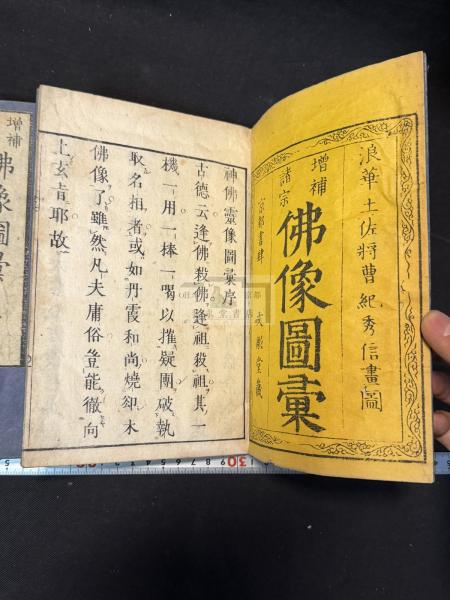 浪華 土佐將曹 紀秀信畫圖
增補
諸宗
佛像圖彙
京都書肆
神佛靈像圖彙序
古德云逢佛殺佛逢祖殺祖其一
機一用一棒一喝以摧疑團破執
取名相者或如丹霞和尚燒卻木
佛像了雖然凡夫庸俗豈能徹向
上玄旨耶故
增補
佛像圖彙
30